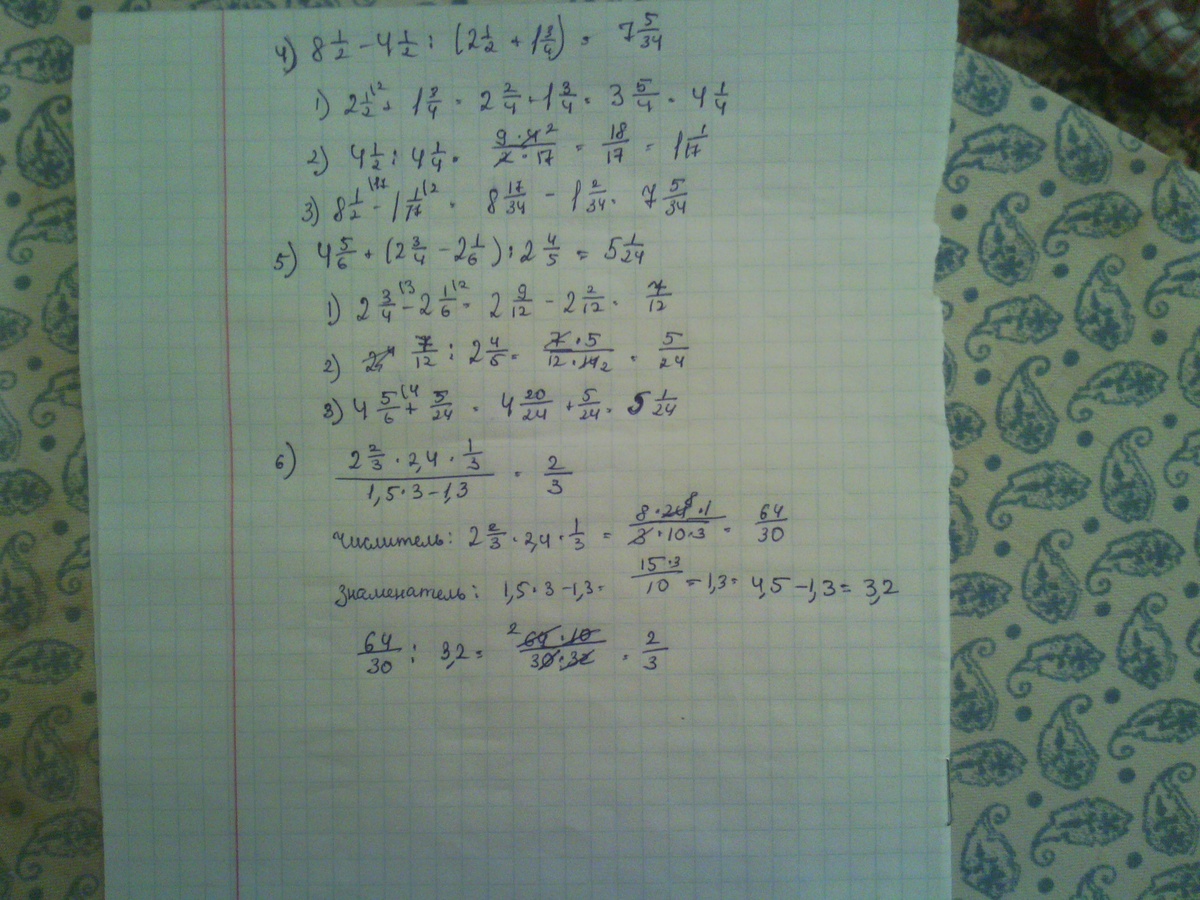 4) 8 1/2 - 4 1/2 : (2 1/2 + 1 3/4) = 7 5/34
1) 2 1/2 \2 + 1 3/4 = 2 2/4 + 1 3/4 = 3 5/4 = 4 1/4
2) 4 1/2 : 4 1/4 = 9·4 2/2·17 = 18/17 = 1 1/17
3) 8 1/2 \17 - 1 1/17 \2 = 8 17/34 - 1 2/34 = 7 5/34
5) 4 5/6 + (2 3/4 - 2 1/6) : 2 4/5 = 5 1/24
1) 2 3/4 \3 - 2 1/6 \2 = 2 9/12 - 2 2/12 = 7/12
2) 7/12 : 2 4/5 = 7·5/12·14 2 = 5/24
3) 4 5/6 \4 + 5/24 = 4 20/24 + 5/24 = 5 1/24
6) 2 2/3 · 2,4 · 1/3 / 1,5·3-1,3 = 2/3
числитель: 2 2/3 · 2,4 · 1/3 = 8·24 8·1/3·10·3 = 64/30
знаменатель: 1,5·3-1,3 = 15·3/10 - 1,3 = 4,5-1,3 = 3,2
64/30 : 3,2 = 2 64·10/30·32 = 2/3